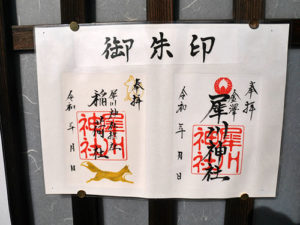 御朱印
奉拝
金澤
犀川神社
令和 年 月 日
犀川神社
奉拝
稲荷社
令和 年 月 日
犀川神社